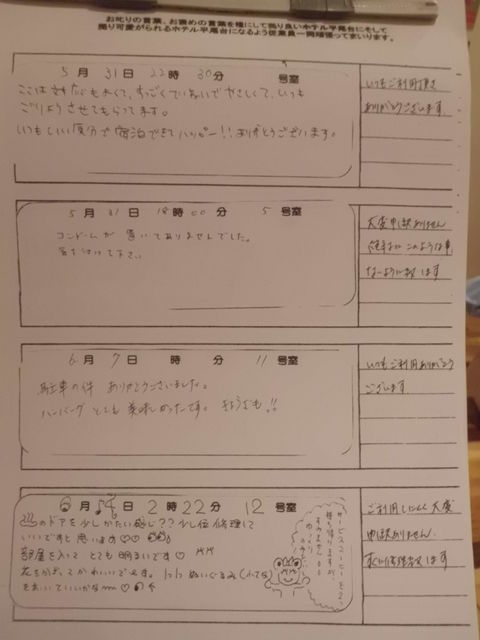 お叱りの言葉、お褒めの言葉を糧にして誇り良いホテル平尾台にそして
誇り可愛がられるホテル平尾台になるよう従業員一同頑張ってまいります。
5月31日22時30分 号室
すっごくていねいでやさしくて、いつも
ごりようさせてもらってます。
いつもいい気分で宿泊できてハッピー!!ありがとうございます。
いつもご利用頂き
ありがとうございます
5月31日18時00分 5号室
コンドームが置いてありませんでした。
気を付けて下さい
大変申訳ありません
このような事
ないように致します
6月7日 時 分 11号室
駐車の件 ありがとうございました。
ハンバーグとても美味しかったです。
いつもご利用ありがとう
ございます
6月14日2時22分 12号室
のドアを少しかたい感じ??少し位修理して
いいですと思います♡♡
部屋を入って とても明るいです♡
花をかざってかわいいです。トトロぬいぐるみ(小さな)
をおいていいかなm♡
サービスコーヒーを2つ
持ち帰りますが、
すみません
ご利用しにくく大変
申訳ありません
すぐに修理致します